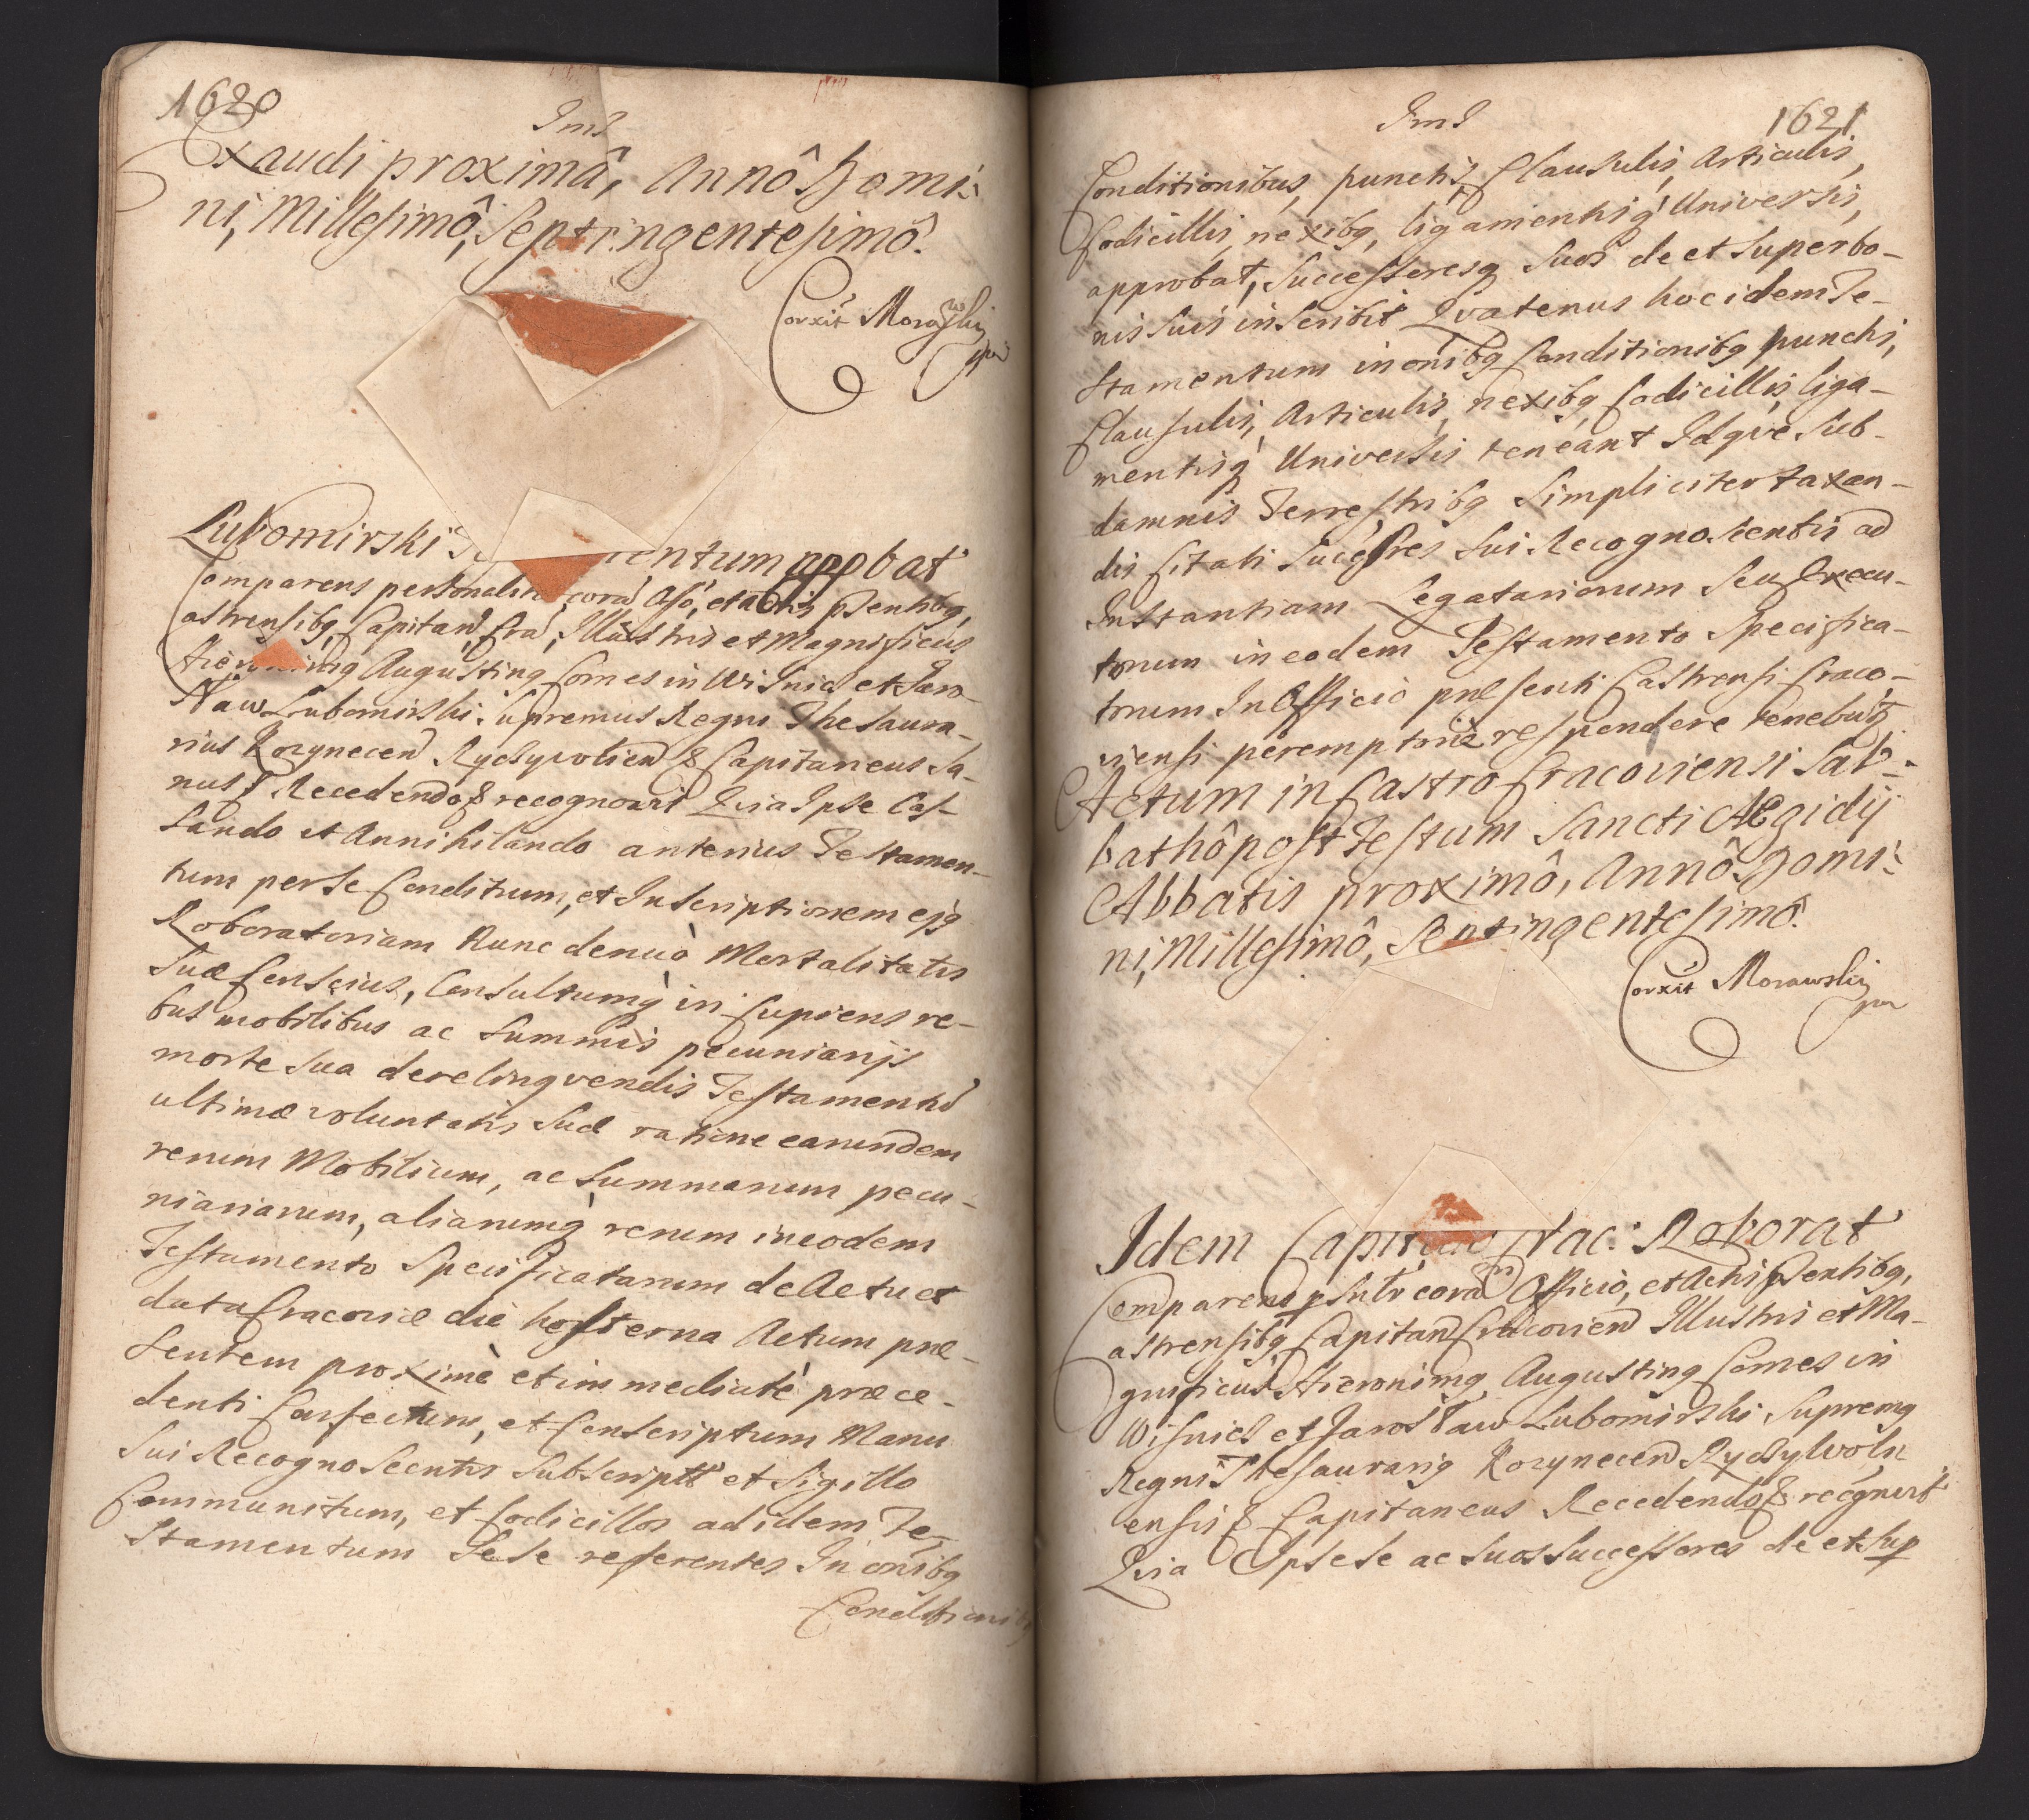 1620
Ind
Exaudi proximâ, Annô Domi:
ni, Millesimô, Septingentesimô.
Corrxit Morawski
mp
Lubomirski entum appbat
Comparens personalitr corã Offô, et actis pñtibq,
astrensibq, Capitan, Cra, Illustris et Magnificus
Hieronimq Augustinq Comes in Wisnicz et Jaro-
sław Lubomirski Supremus Regni Thesaura-
rius Kozynecen Ryczywolien & Capitaneus Sa-
nus & Recedendo & recognovit Quia Ipse Cas-
sando et Annihilando anterius Testamen-
tum per se Conditum, et Inscriptionem ejq
Roboratoriam Nunc denuò Mortalitatis
Suæ Conscius, Consultumq iri Cupiens re-
bus mobilibus ac Summis pecuniarijs
morte sua derelinqvendis Testamentũ
ultimæ voluntatis Suæ ratione earundem
rerum Mobilium, ac Summarum pecu-
niariarum, aliarumq rerum in eodem
Testamento Specificatarum de Actu et
data Cracoviæ die hesterna Actum præ-
sentem proximè et immediatè præce-
denti Confectum, et Conscriptum Manu
Sui Recognoscentis Subscriptũ et Sigillo
Communitum, et Codicillos ad idem Te-
stamentum Sese referentes In oñibq
Conditionibq
Ind
1621
Conditionibus, punctis, Clausulis, Articulis,
Codicillis, nexibq, ligamentisq Universis,
approbat, Successoresq Suos de et super bo-
nis suis inscribit Qvatenus hoc idem Te-
stamentum in oñibq Conditionibq punctis,
Clausulis, Articulis, nexibq Codicillis, liga-
mentisq Universis teneant Idqve Sub
damnis Terrestribq Simpliciter taxan-
dis Citati Succesres Sui Recognoscentis ad
Instantiam Legatariorum Seu Execu-
torum in eodem Testamento Specifica-
torum In Officio præsenti Castrensi Craco-
viensi peremptoriè respondere tenebũtq
Actum in Castro Cracoviensi Sab:
bathô post Festum Sancti Aegidij
Abbatis proximô, Annô Domi:
ni, Millesimô, Septingentesimô.
Corrxit Morawski
mp
Idem Capitaneo Crac: Roborat
Comparens psnltr corã Officio, et Actis pñtibq,
astrensibq Capitan Cracovien Illustris et Ma-
gnificus Hieronimq Augustinq Comes in
Wisnicz et Jarosław Lubomirski Supremq
Regni Thesaurariq Kozynecen Ryczywoln
ensis & Capitaneus Recedendo & recgnovit
Quia Ipse se ac suos Successores de et sup